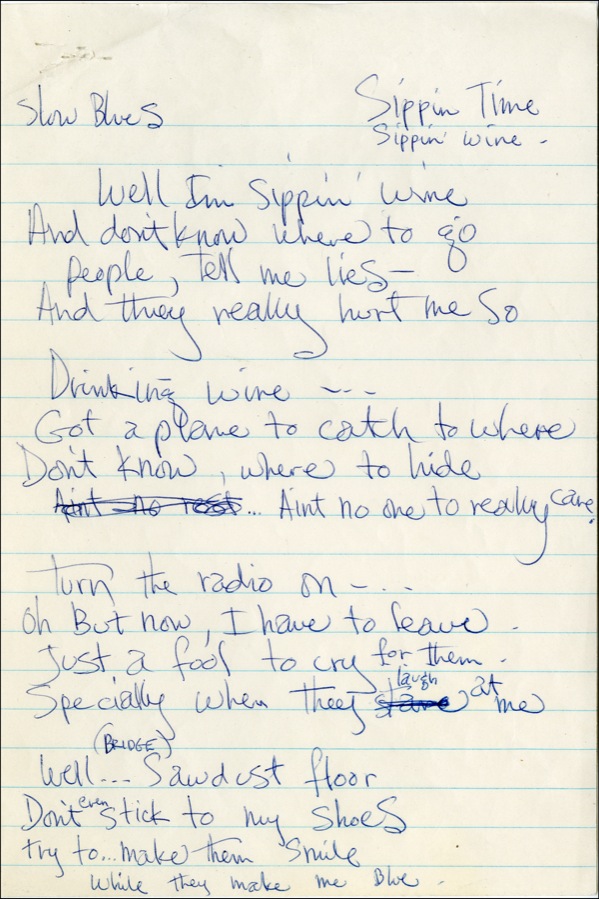 Slow Blues
Sippin Time
Sippin' wine -
Well I'm Sippin' wine
And don't know where to go
people, tell me lies -
And they really hurt me So
Drinking wine ---
Got a plane to catch to where
Don't know, where to hide
Aint no rest... Aint no one to really care.
Turn the radio on - ...
Oh But now, I have to leave.
Just a fool to cry for them.
Specially when they stare laugh at me
(BRIDGE)
Well... Sawdust floor
Don't even stick to my shoes
try to... make them smile
while they make me Blue.